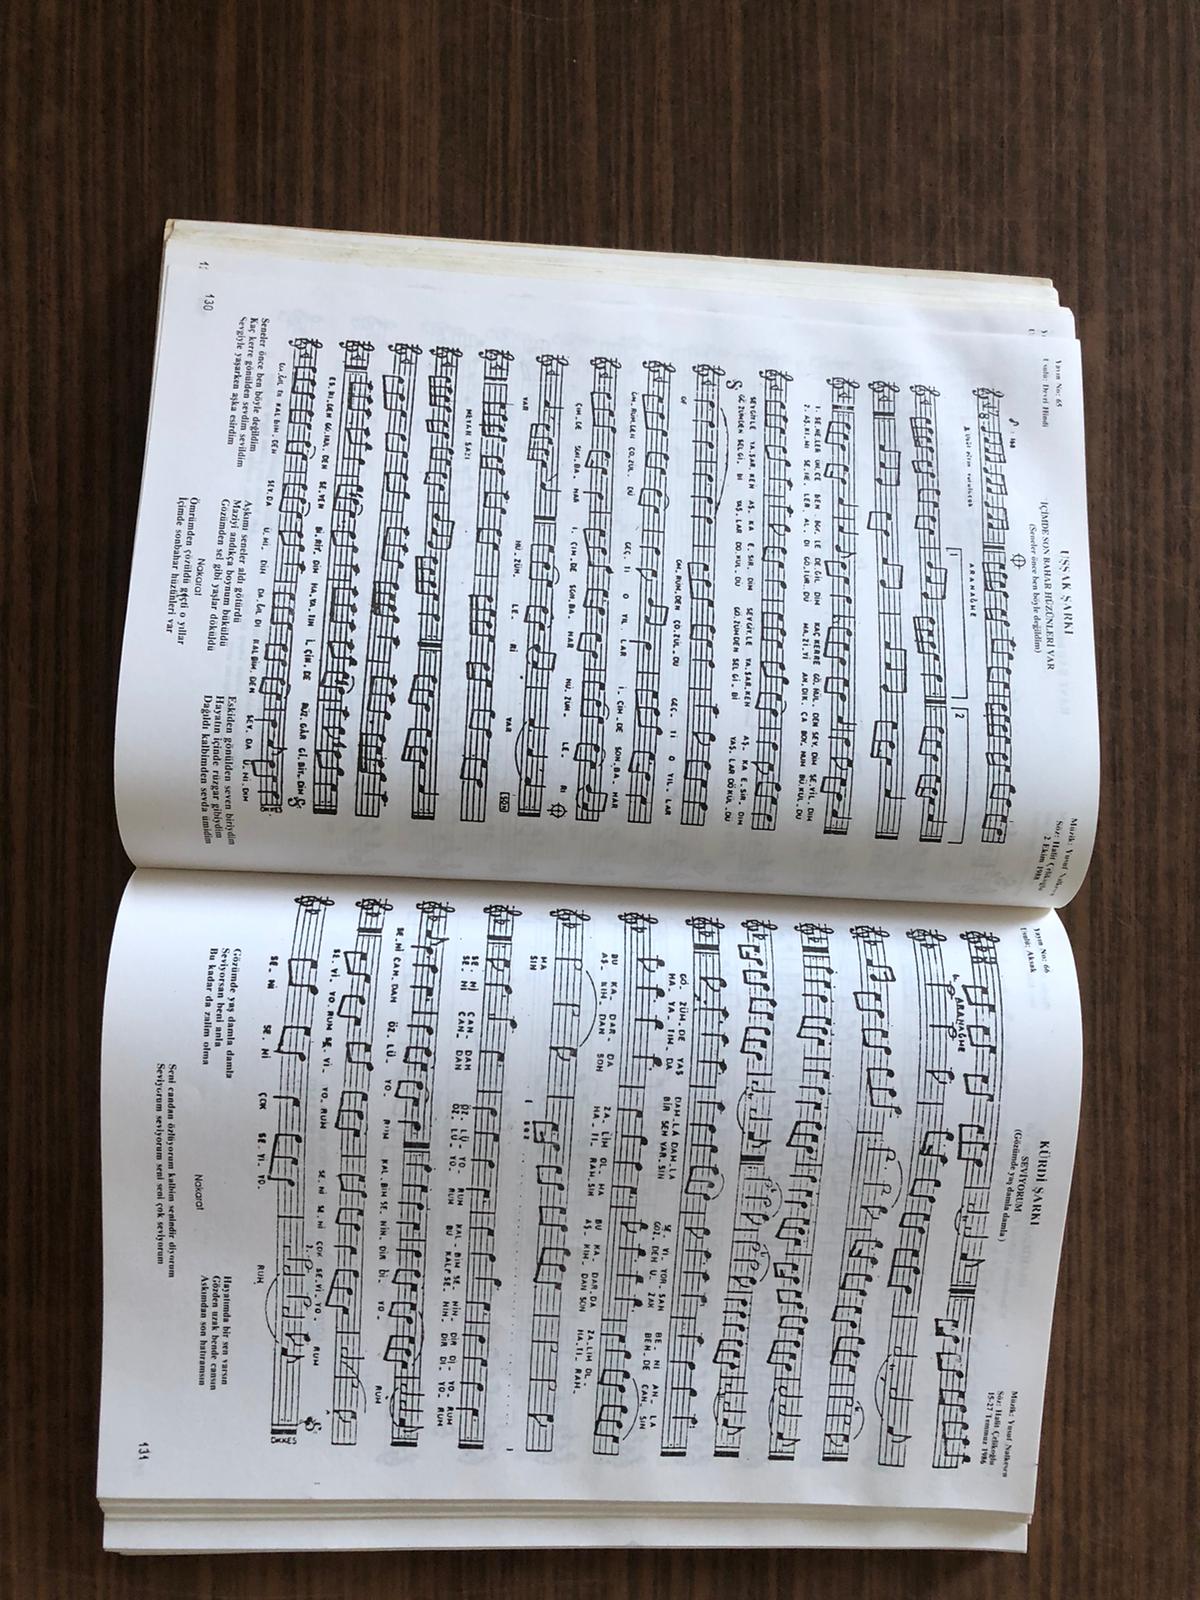 Yayın No: 65
Usulü: Devri Hindi
UŞŞAK ŞARKI
İÇİMDE SON BAHAR HÜZÜNLERİ VAR
(Seneler önce ben böyle değildim)
Müzik: Yusuf Nalkesen
Söz: Halit Çelikoğlu
2 Ekim 1988
ARANAĞME
1 2
1. SE.NE.LER ÖN.CE BEN BÖY.LE DE.ĞİL DİM KAÇ KERRE GÖ.NÜL. DEN SEV. DİM SE.VİL. DİM
2. AŞ.KI.MI SE.NE LER AL. DI GÖ.TÜR. DÜ MA.Zİ.Yİ AN.DIK. ÇA BOY. NUM BÜ.KÜL. DÜ
SEVGİYLE YA.ŞAR.KEN AŞ. KA E.SİR. DİM SEVGİY.LE YA.ŞAR.KEN AŞ. KA E.SİR. DİM
GÖ.ZÜMDEN SEL.Gİ. Bİ YAŞ. LAR DÖ.KÜL. DÜ GÖ.ZÜMDEN SEL Gİ. Bİ YAŞ. LAR DÖKÜL. DÜ
OF ÖM.RÜM.DEN ÇÖ.ZÜL. DÜ GEÇ. Tİ O YIL. LAR
ÖM.RÜM.DEN ÇÖ.ZÜL. DÜ GEÇ. Tİ O YIL LAR İ. ÇİM. DE SON.BA. HAR
ÇİM.DE SON.BA. HAR İ. ÇİM.DE SON.BA. HAR HÜ. ZÜN. LE. Rİ
VAR HÜ. ZÜN. LE. Rİ VAR
SON
MEYAN SAZI
ES. Kİ.DEN GÖ.NÜL. DEN SE.VEN Bİ.RİY. DİM HA.YA.TIN İ.ÇİN. DE RÜZ. GÂR Gİ. BİY. DİM
DA.ĞIL. DI KAL BİM. DEN SEV.DA Ü.Mİ. DİM DA.ĞIL. DI KALBİM. DEN SEV. DA Ü. Mİ. DİM
Seneler önce ben böyle değildim
Kaç kerre gönülden sevdim sevildim
Sevgiyle yaşarken aşka esirdim
Aşkımı seneler aldı götürdü
Maziyi andıkça boynum büküldü
Gözümden sel gibi yaşlar döküldü
Eskiden gönülden seven biriydim
Hayatın içinde rüzgar gibiydim
Dağıldı kalbimden sevda ümidim
Nakarat
Ömrümden çözüldü geçti o yıllar
İçimde sonbahar hüzünleri var
130
Yayın No: 66
Usulü: Aksak
KÜRDİ ŞARKI
SEVİYORUM
(Gözümde yaş damla damla)
Müzik: Yusuf Nalkesen
Söz: Halit Çelikoğlu
15-27 Temmuz 1986
ARANAĞME
GÖ. ZÜM.DE YAŞ DAM.LA DAM.LA SE. Vİ. YOR.SAN BE. Nİ AN. LA
HA. YA. TIM.DA BİR SEN VAR.SIN GÖZ. DEN U. ZAK BEN. DE CAN. SIN
BU KA DAR. DA ZA. LİM OL. MA BU KA. DAR.DA ZA.LİM OL.
AŞ. KIM. DAN SON HA. TI. RAM.SIN AŞ. KIM. DAN SON HA.TI. RAM.
MA
SIN
SE. Nİ CAN. DAN ÖZ. LÜ. YO. RUM KAL. BİM SE. NİN. DİR Dİ. YO. RUM
SE. Nİ CAN. DAN ÖZ. LÜ. YO. RUM BU KALP SE. NİN. DİR Dİ. YO. RUM
SE.Nİ CAN.DAN ÖZ. LÜ. YO. RUM KAL. BİM SE. NİN. DİR Dİ. YO. RUM
SE. Vİ. YO. RUM SE. Vİ. YO. RUM SE. Nİ SE. Nİ ÇOK SE. Vİ. YO. RUM
SE. Nİ SE. Nİ ÇOK SE. Vİ. YO. RUM
ÖKKEŞ
Gözümde yaş damla damla
Seviyorsan beni anla
Bu kadar da zalim olma
Hayatımda bir sen varsın
Gözden uzak bende cansın
Aşkımdan son hatıramsın
Nakarat
Seni candan özlüyorum kalbim senindir diyorum
Seviyorum seviyorum seni seni çok seviyorum
131